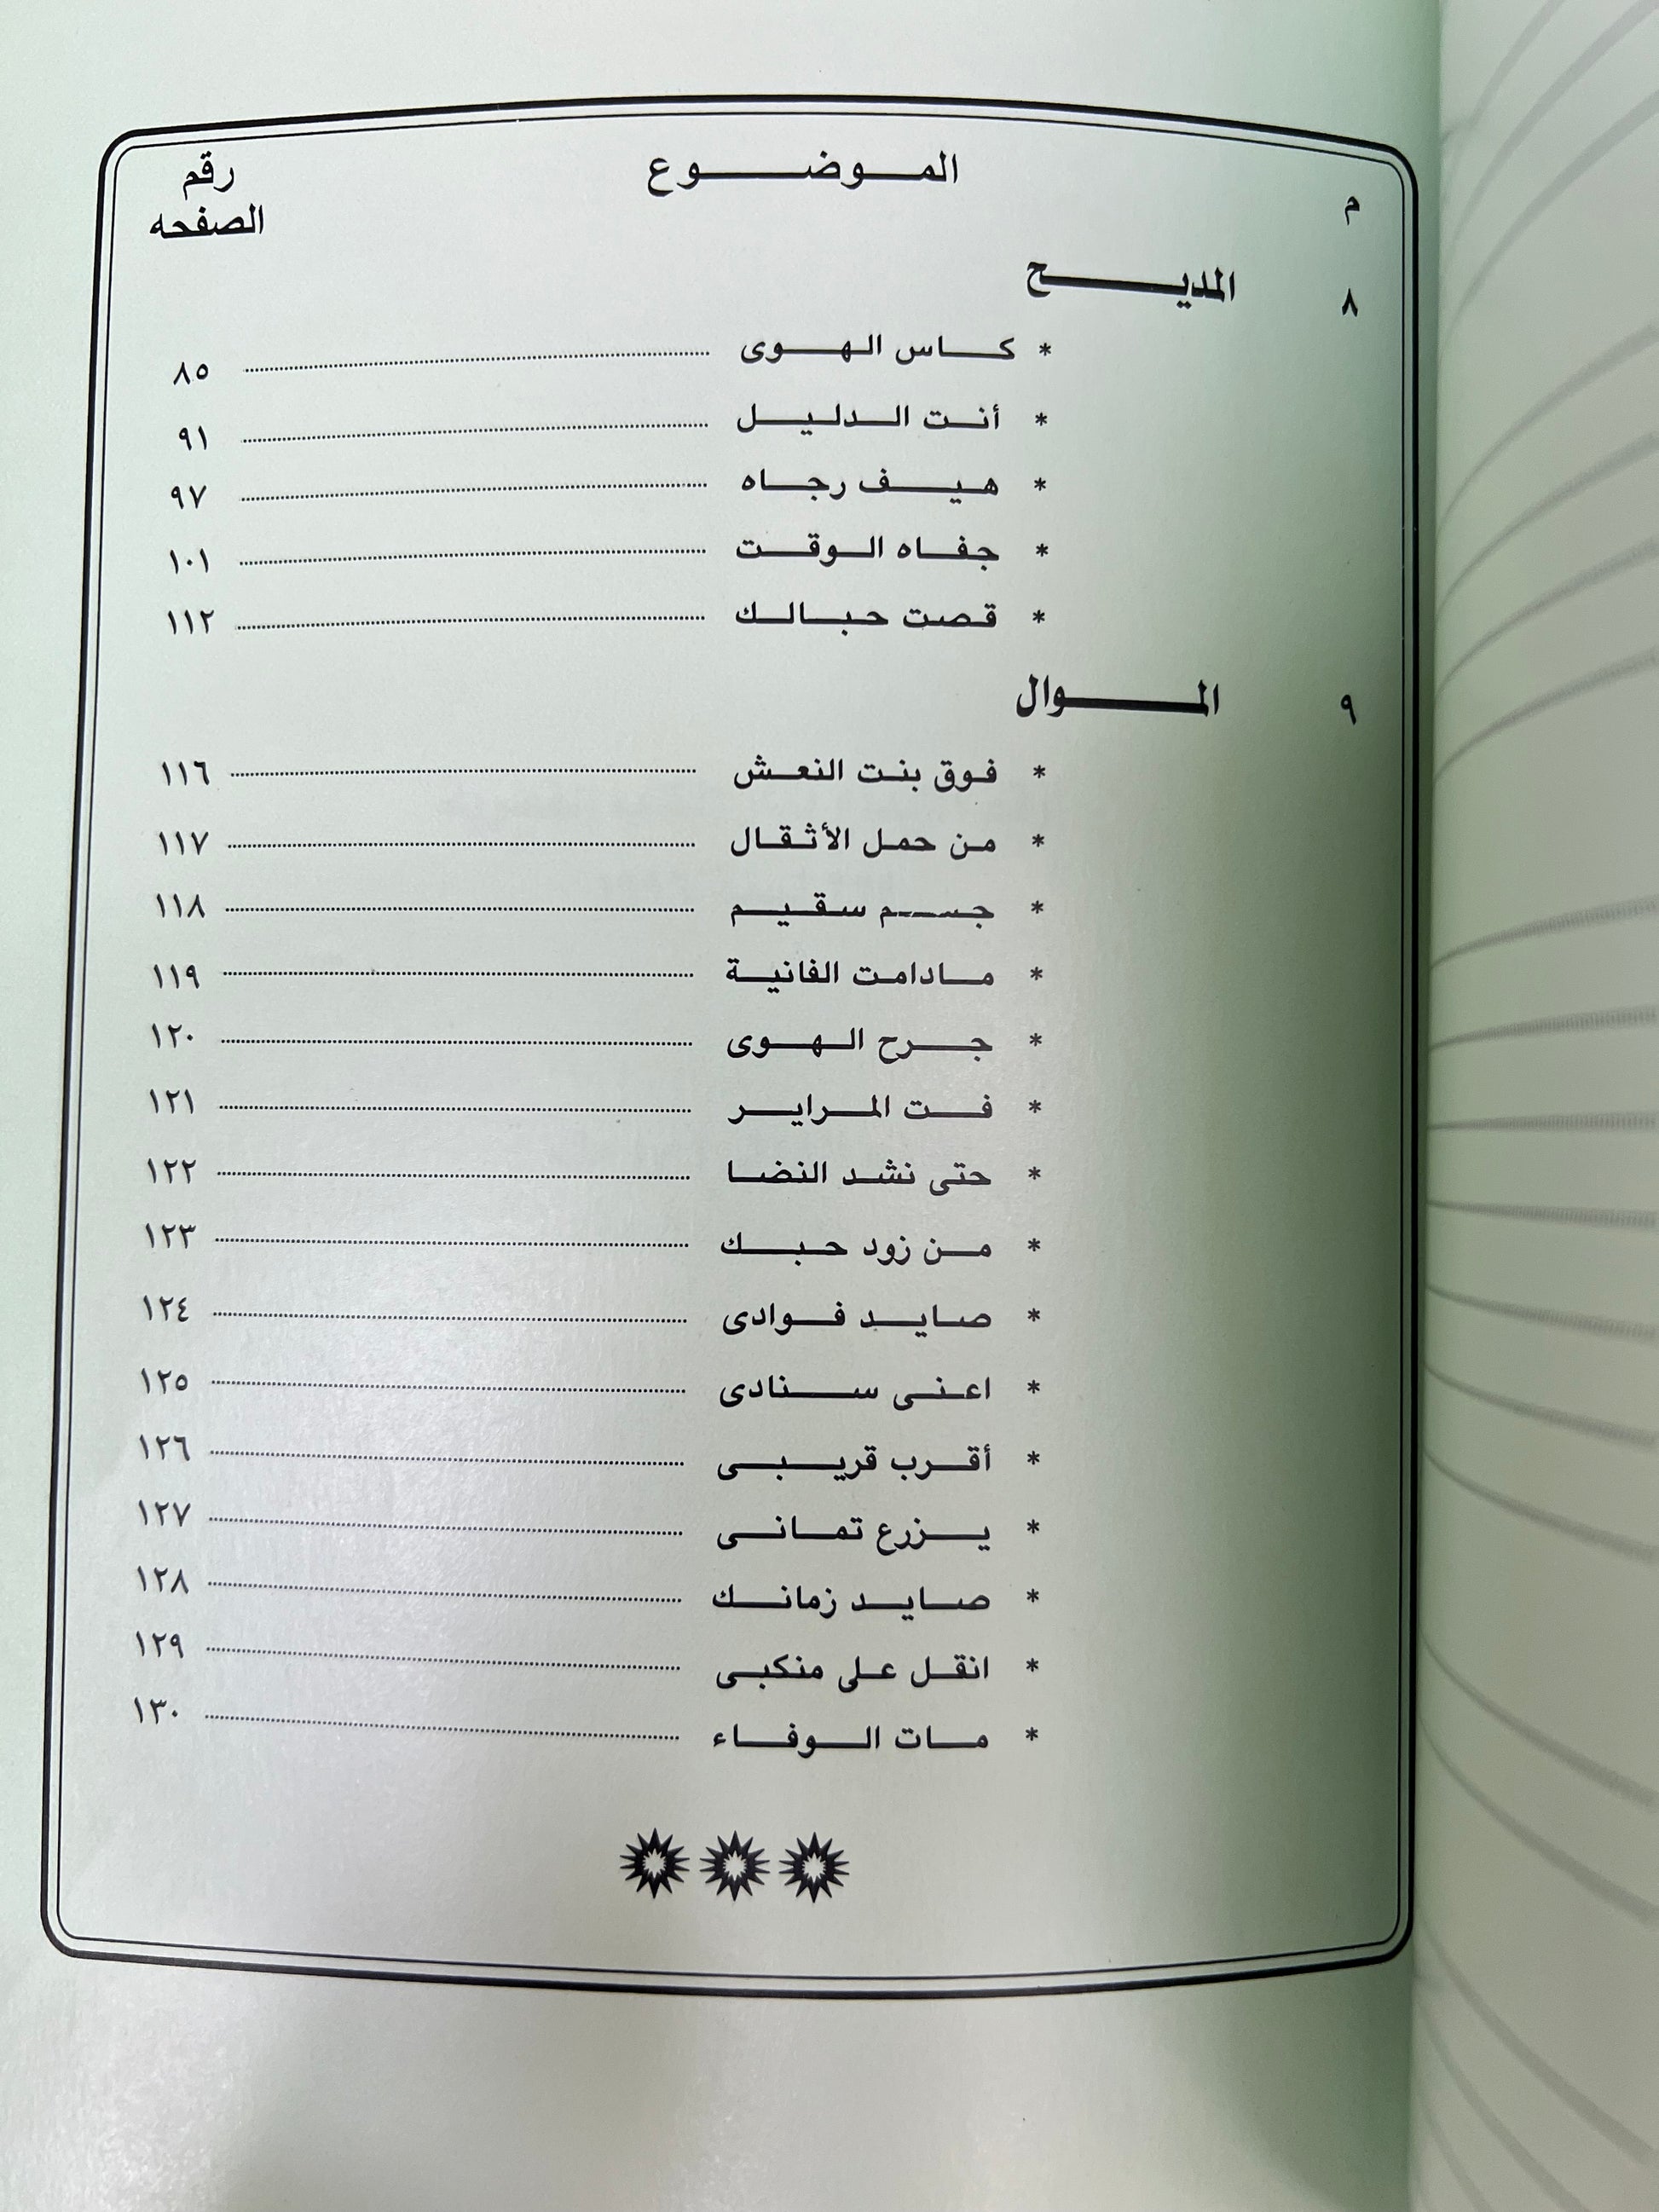 م الموضوع رقم الصفحه
٨ المديح
* كاس الهوى ٨٥
* أنت الدليل ٩١
* هيف رجاه ٩٧
* جفاه الوقت ١٠١
* قصت حبالك ١١٢
٩ الموال
* فوق بنت النعش ١١٦
* من حمل الأثقال ١١٧
* جسم سقيم ١١٨
* مادامت الفانية ١١٩
* جرح الهوى ١٢٠
* فت المراير ١٢١
* حتى نشد النضا ١٢٢
* من زود حبك ١٢٣
* صايد فوادى ١٢٤
* اعنى سنادى ١٢٥
* أقرب قريبى ١٢٦
* يزرع تمانى ١٢٧
* صايد زمانك ١٢٨
* انقل على منكبى ١٢٩
* مات الوفاء ١٣٠